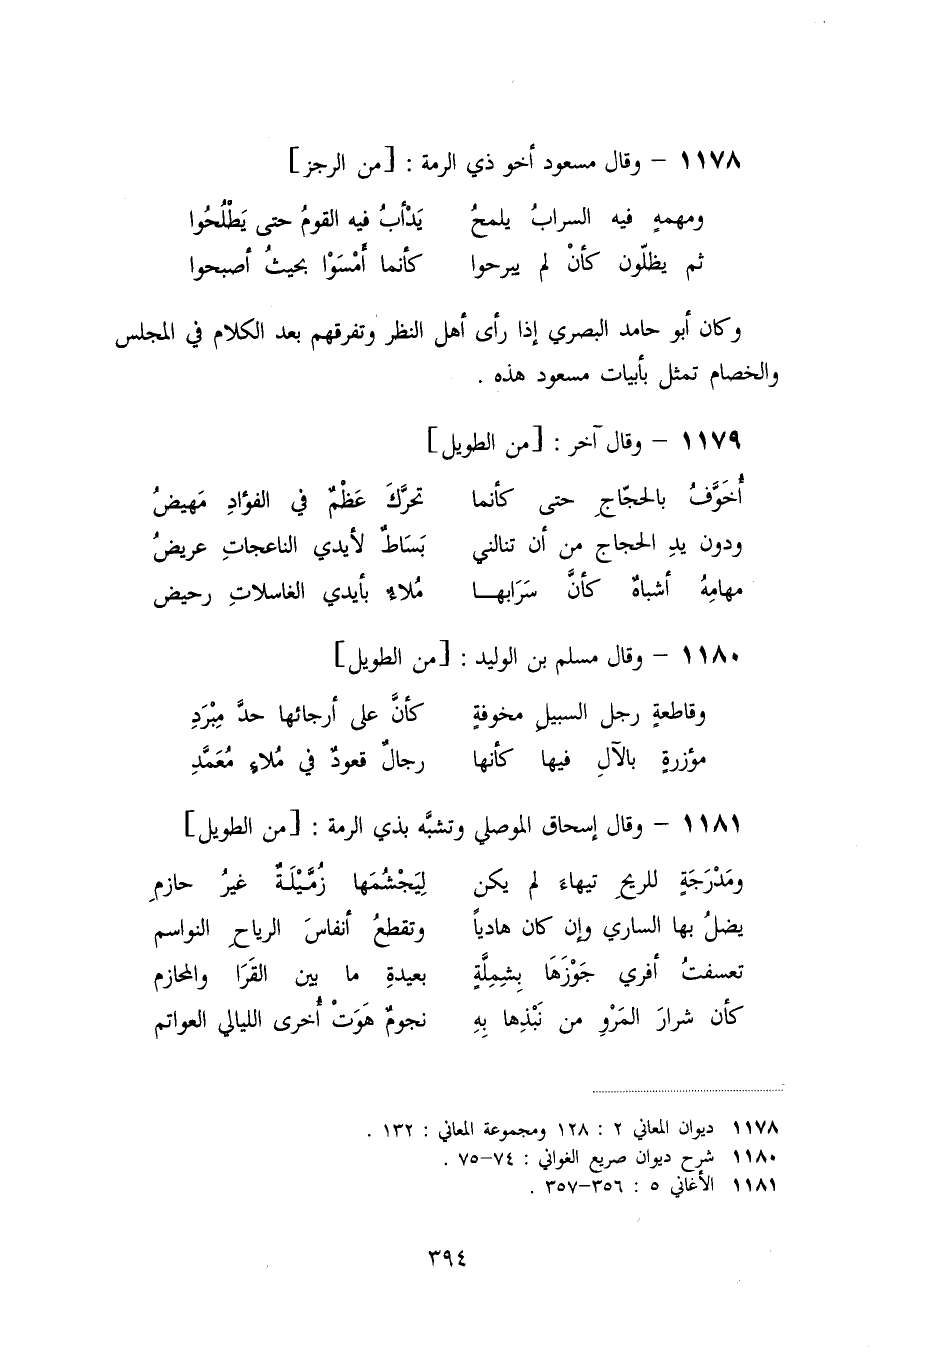 ١١٧٨ – وقال مسعود أخو ذي الرمة : [من الرجز]
ومهمهٍ فيه السرابُ يلمحُ يَدْأبُ فيه القومُ حتى يَطْلُحُوا
ثم يظلّون كأنْ لم يبرحوا كأنما أَمْسَوْا بحيثُ أصبحوا
وكان أبو حامد البصري إذا رأى أهل النظر وتفرقهم بعد الكلام في المجلس
والخصام تمثل بأبيات مسعود هذه .
١١٧٩ – وقال آخر : [من الطويل]
أُخَوَّفُ بالحجّاجِ حتى كأنما تحرَّكَ عَظْمٌ في الفؤادِ مَهيضُ
ودون يدِ الحجاج من أن تنالني بَسَاطٌ لأيدي الناعجاتِ عريضُ
مهامِهُ أشباهٌ كأنَّ سَرَابهـا مُلاءٌ بأيدي الغاسلاتِ رحيض
١١٨٠ – وقال مسلم بن الوليد : [من الطويل]
وقاطعةٍ رجل السبيلِ مخوفةٍ كأنَّ على أرجائها حدَّ مِبْرَدِ
مؤزرةٍ بالآلِ فيها كأنها رجالٌ قعودٌ في مُلاءٍ مُعَمَّدِ
١١٨١ – وقال إسحاق الموصلي وتشبَّه بذي الرمة : [من الطويل]
ومَدْرَجَةٍ للريحِ تيهاءَ لم يكن لِيَجْشُمَها زُمَّيْلَةٌ غيرُ حازمِ
يضلُ بها الساري وإن كان هادياً وتقطعُ أنفاسَ الرياحِ النواسم
تعسفتُ أفري جَوْزَهَا بِشِمِلَّةٍ بعيدةِ ما بين القَرَا والمحازم
كأن شرارَ المَرْوِ من نَبْذِها بِهِ نجومٌ هَوَتْ أُخرى الليالي العواتم
١١٧٨ ديوان المعاني ٢ : ١٢٨ ومجموعة المعاني : ١٣٢ .
١١٨٠ شرح ديوان صريع الغواني : ٧٤–٧٥ .
١١٨١ الأغاني ٥ : ٣٥٦–٣٥٧ .
٣٩٤